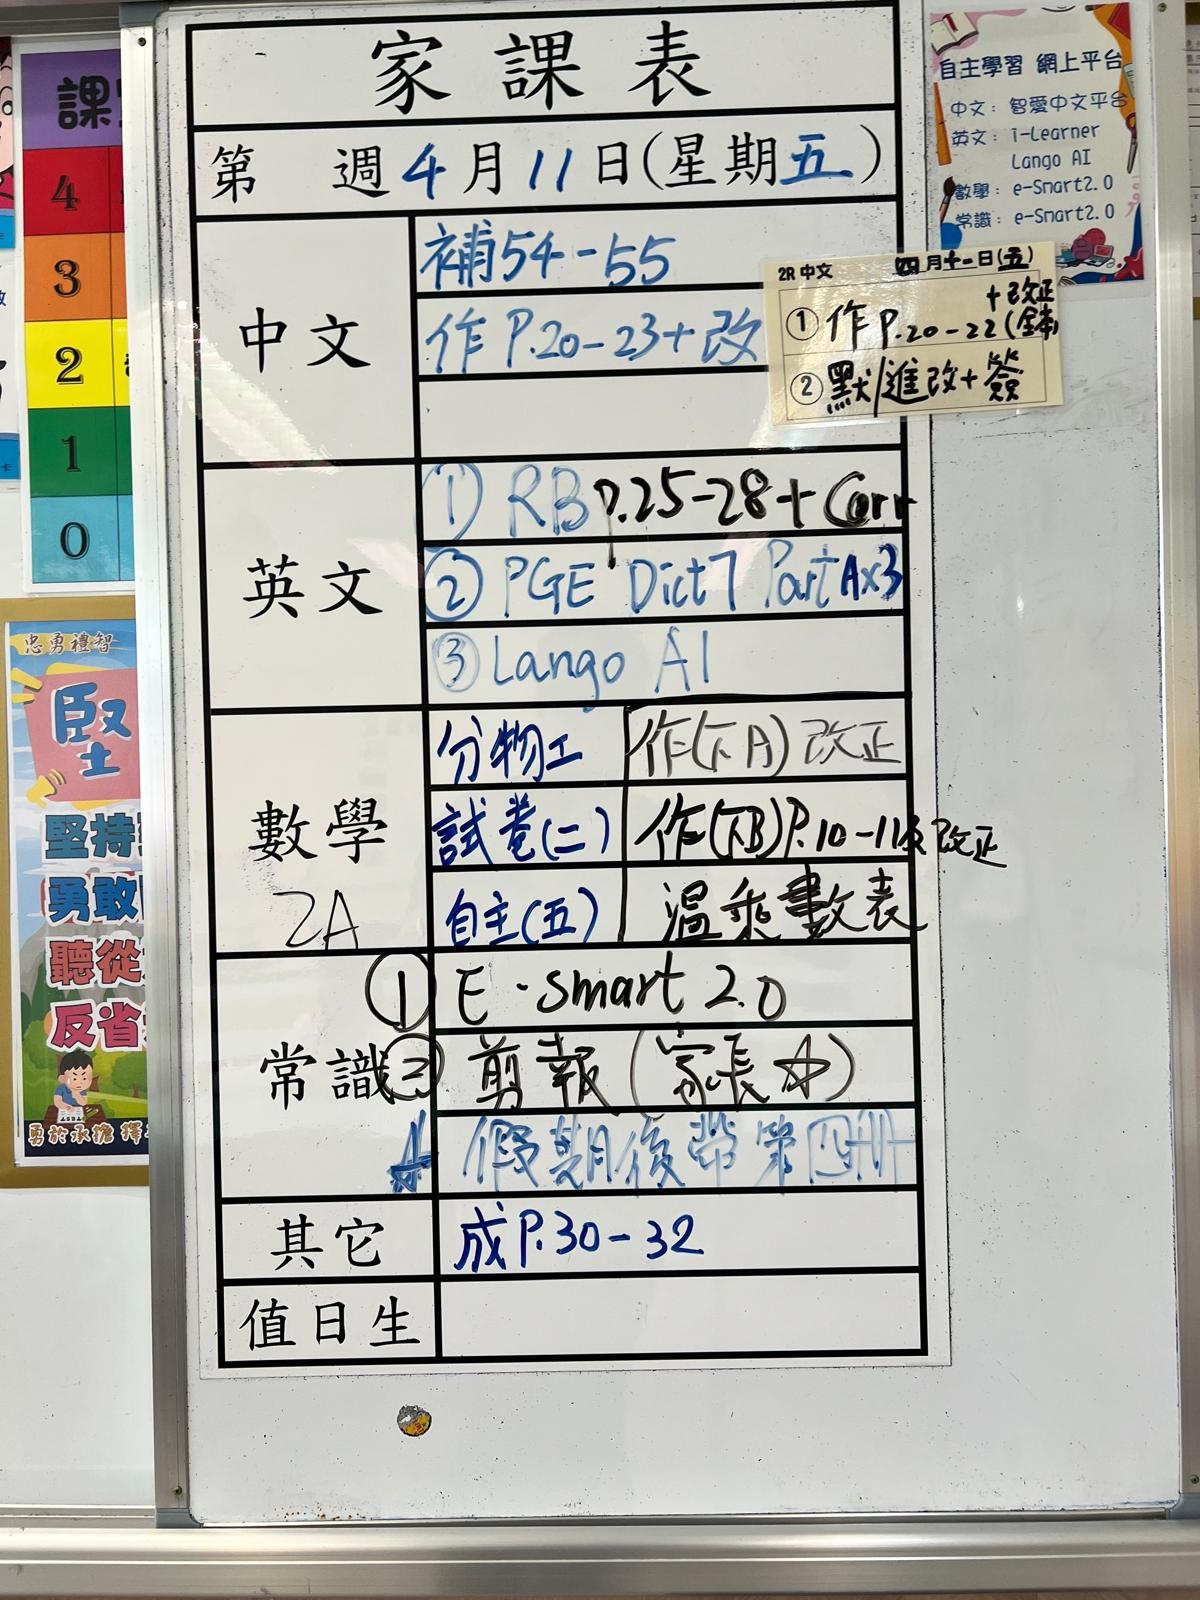 家課表
第 週4月11日(星期五)
中文
補54-55
作P.20-23+改
2R 中文 四月十一日(五)
+改正
①作P.20-22(全本)
②默/進改+簽
英文
①RB P.25-28+Corr
②PGE Dict7 Part A×3
③Lango AI
數學
2A
分物工 作(下A)改正
試卷(二) 作(下B)P.10-11及改正
自主(五) 溫乘數表
常識
①E-smart 2.0
②剪報(家長☆)
☆ 假期後帶第四冊
其它
成P.30-32
值日生
自主學習 網上平台
中文：智愛中文平台
英文：i-Learner
Lango AI
數學：e-Smart2.0
常識：e-Smart2.0
課
4
3
2
1
0
忠勇禮智
堅
堅持
勇敢
聽從
反省
勇於承擔 擇